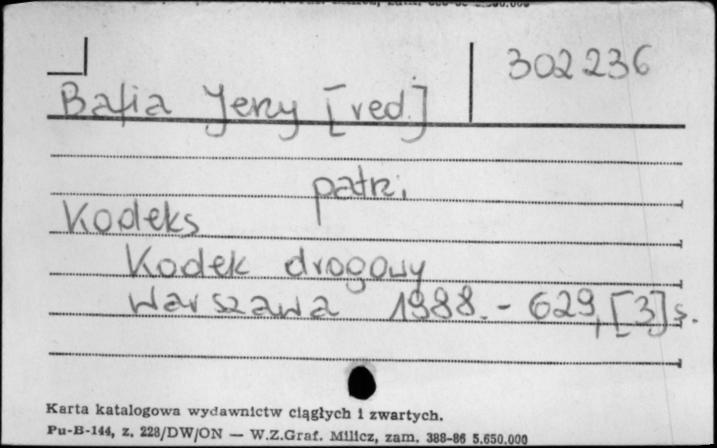 302236
Bafia Jerzy [red.]
patrz.
Kodeks
Kodek drogowy
Warszawa 1988. - 629, [3] s.
Karta katalogowa wydawnictw ciągłych i zwartych.
Pu-B-144, z. 228/DW/ON — W.Z.Graf. Milicz, zam. 388-86 5.650.000